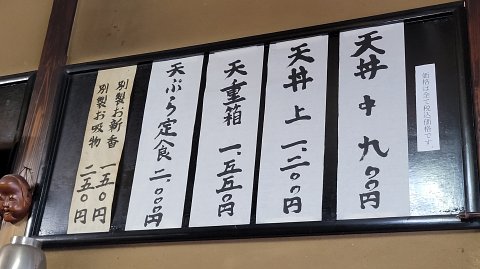 価格は全て税込価格です
天丼 中 九〇〇円
天丼 上 一、二〇〇円
天重箱 一、五五〇円
天ぷら定食 二、〇〇〇円
別製お新香 一五〇円
別製お吸物 二五〇円